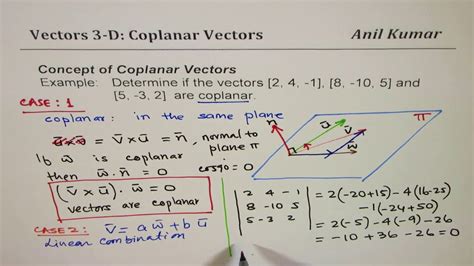 Vectors 3-D: Coplanar Vectors
Anil Kumar
Concept of Coplanar Vectors
Example: Determine if the vectors [2, 4, -1], [8, -10, 5] and
[5, -3, 2] are coplanar.
CASE: 1
coplanar: in the same plane
v̄×ū = n̄, normal to
plane π
If w̄ is coplanar
then w̄ · n̄ = 0
cos90 = 0
(v̄ × ū) · w̄ = 0
vectors are coplanar
CASE 2: v̄ = a w̄ + b ū
Linear combination
n̄
ū
v̄
w̄
π
2 4 -1
8 -10 5
5 -3 2
= 2(-20+15) - 4(16-25)
-1(-24+50)
= 2(-5) - 4(-9) - 26
= -10 + 36 - 26 = 0